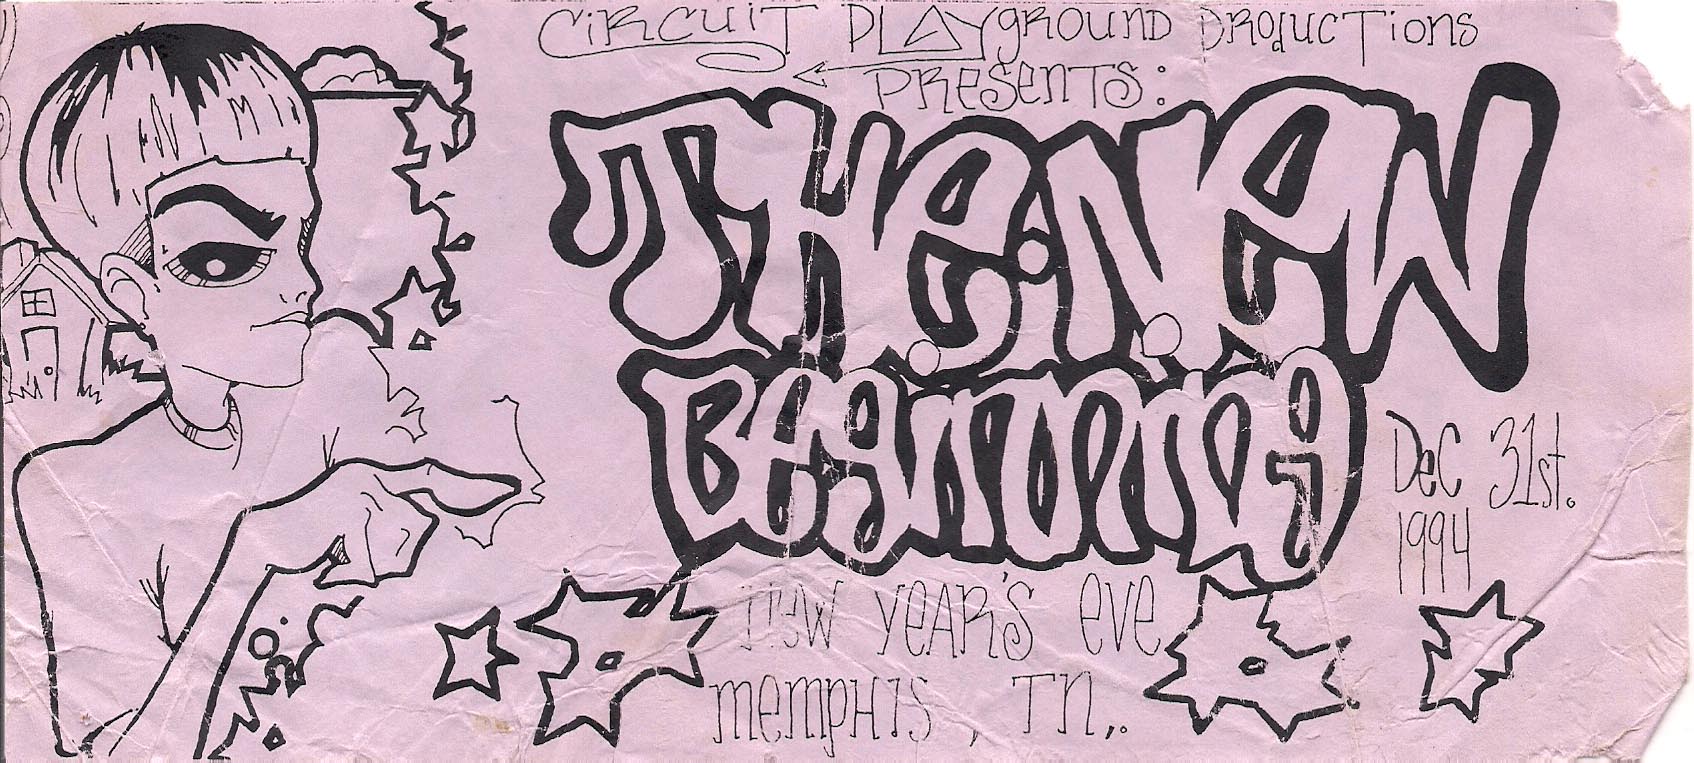 CiRCUiT PLAYground Productions
PResents:
THe New
Beginning
Dec 31st.
1994
new Year's eve
memphis, Tn,.